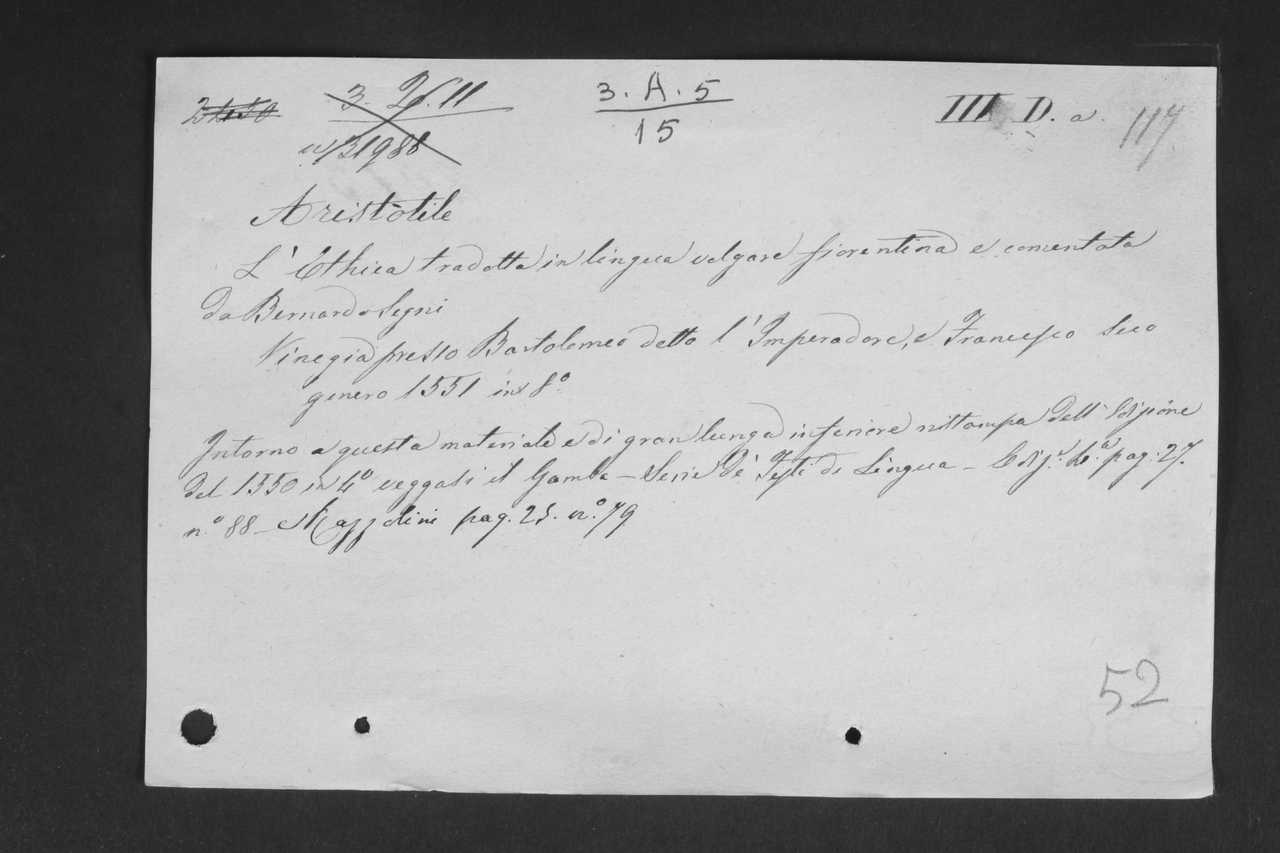 3. A. 5
15
III D. a. 117
Aristòtile
L'Ethica tradotta in lingua volgare fiorentina e comentata
da Bernardo Segni
Vinegia presso Bartolomeo detto l'Imperadore, e Francesco suo
genero 1551 in 8.º
Intorno a questa materiale e di gran lunga inferiore ristampa dell'Edizione
del 1550 in 4º veggasi il Gamba - Serie de' Testi di Lingua - Ediz.e 4.a pag. 27.
n.º 88 - Mazzolini pag. 25. n.º 79
52